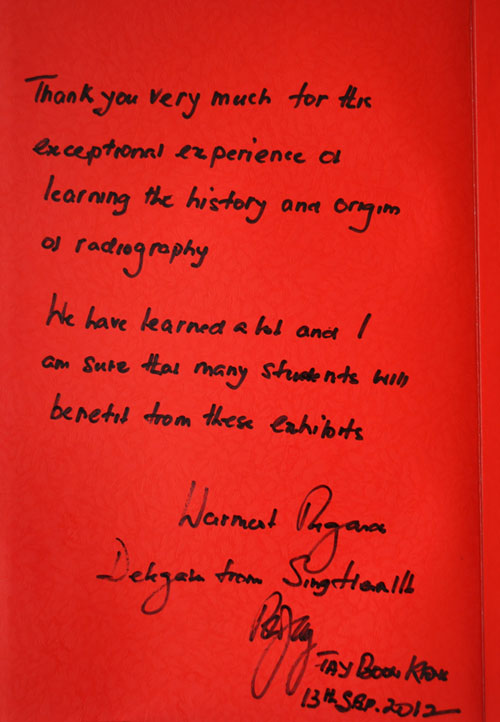 Thank you very much for the
exceptional experience of
learning the history and origin
of radiography
We have learned a lot and I
am sure that many students will
benefit from these exhibits
Warmest Regards
Delegate from SingHealth
TAY BOON
13th SEP. 2012